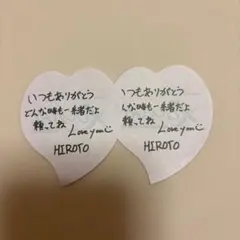 いつもありがとう
どんな時も一緒だよ
頼ってね
Love you
HIROTO
いつもありがとう
んな時も一緒だよ
頼ってね
Love you
HIROTO